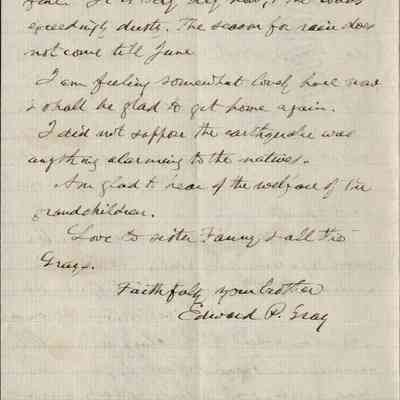 fine. It is very dry now, & the roads
exceedingly dusty. The season for rain does
not come till June
I am feeling somewhat lonely here now
& shall be glad to get home again.
I did not suppose the earthquake was
anything alarming to the natives.
Am glad to hear of the welfare of the
grandchildren.
Love to sister Fanny & all the
Grays.
Faithfully your brother
Edward P. Gray